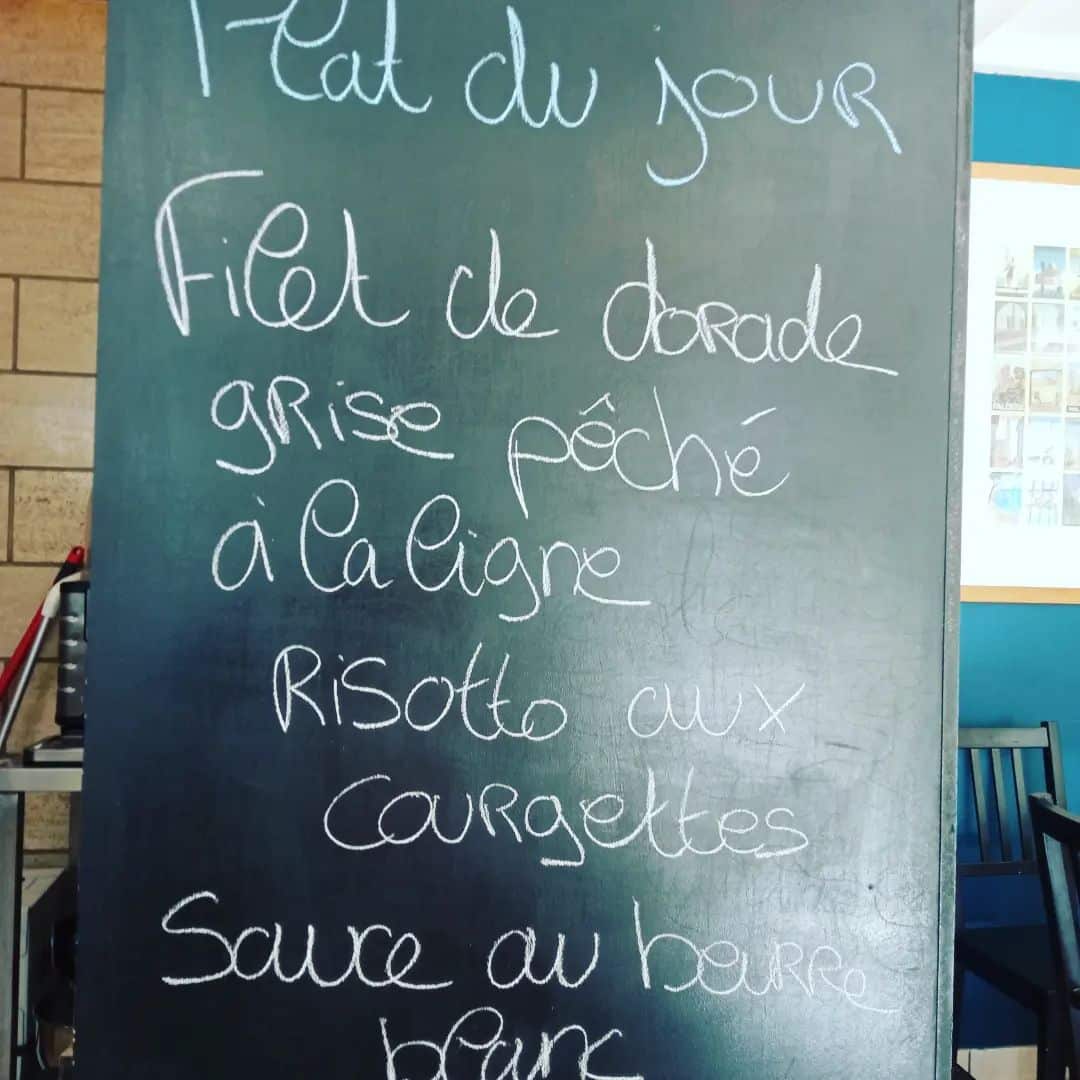 Plat du jour
Filet de dorade
grise pêché
à la ligne
Risotto aux
courgettes
Sauce au beurre
blanc